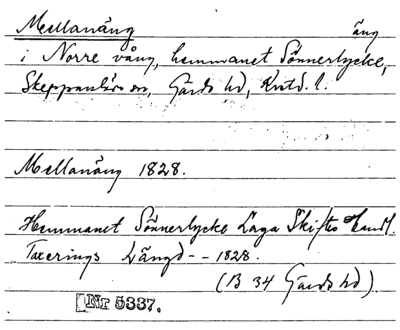 Mellanäng äng
i Norre vång, hemmanet Sönnerlycke,
Skeppanlövs sn, Gärds hd, Krstd. l.
Mellanäng 1828.
Hemmanet Sönnerlycke Laga Skiftes Handl.
Taxerings Längd -- 1828.
(B 34 Gärds hd).
Nr 5337.